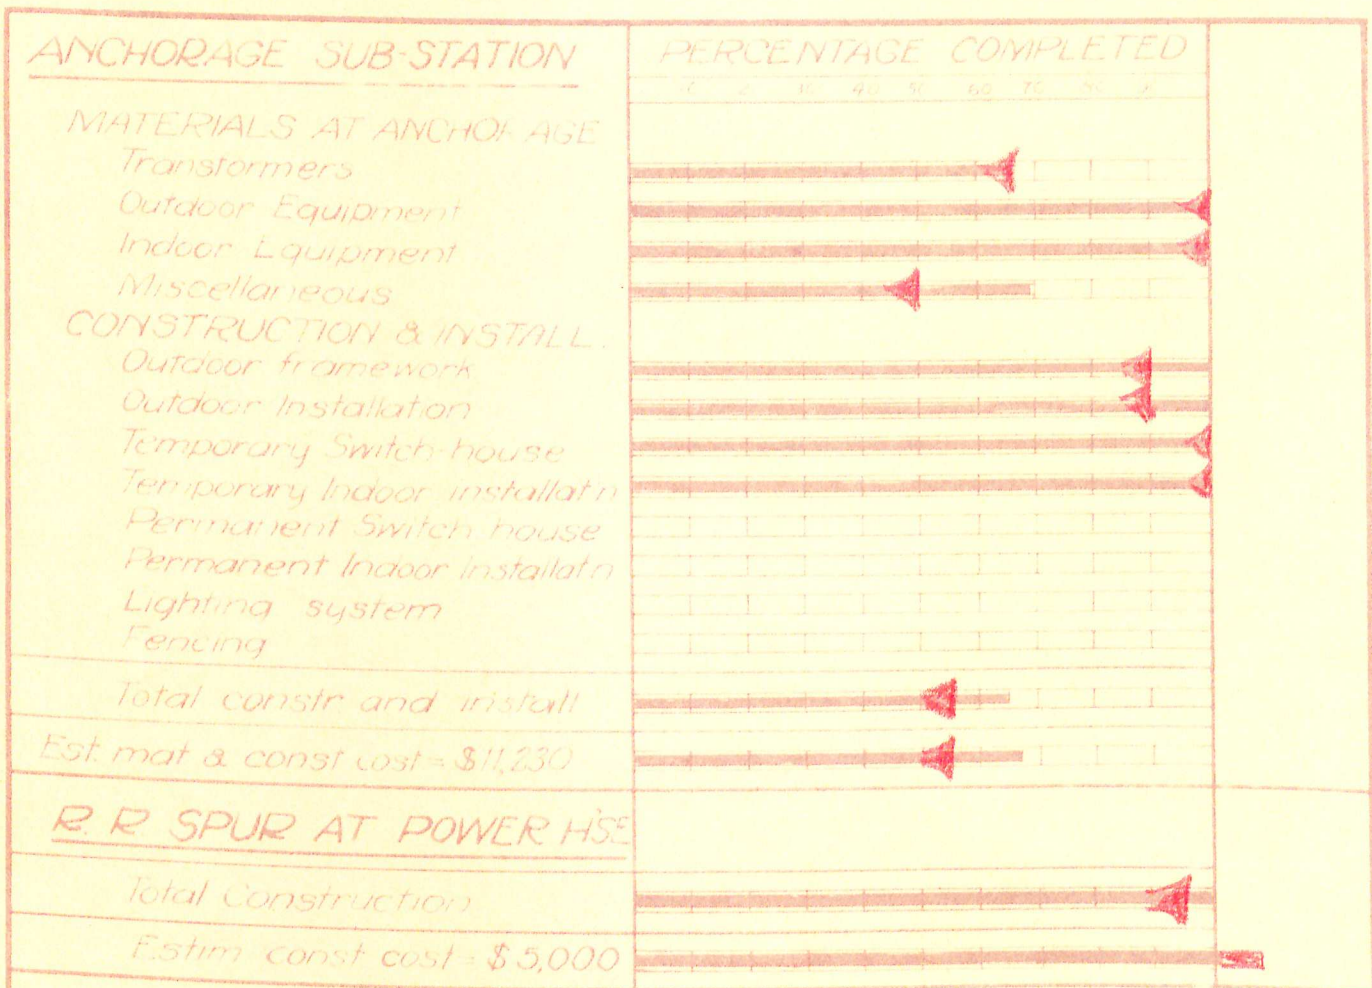 ANCHORAGE SUB-STATION
PERCENTAGE COMPLETED
40 50 60 70
MATERIALS AT ANCHORAGE
Transformers
Outdoor Equipment
Indoor Equipment
Miscellaneous
CONSTRUCTION & INSTALL.
Outdoor framework
Outdoor Installation
Temporary Switch-house
Temporary Indoor installat'n
Permanent Switch house
Permanent Indoor Installat'n
Lighting system
Fencing
Total constr. and install
Est. mat & const cost = $11,230
R. R SPUR AT POWER H'SE
Total Construction
Estim const cost = $5,000